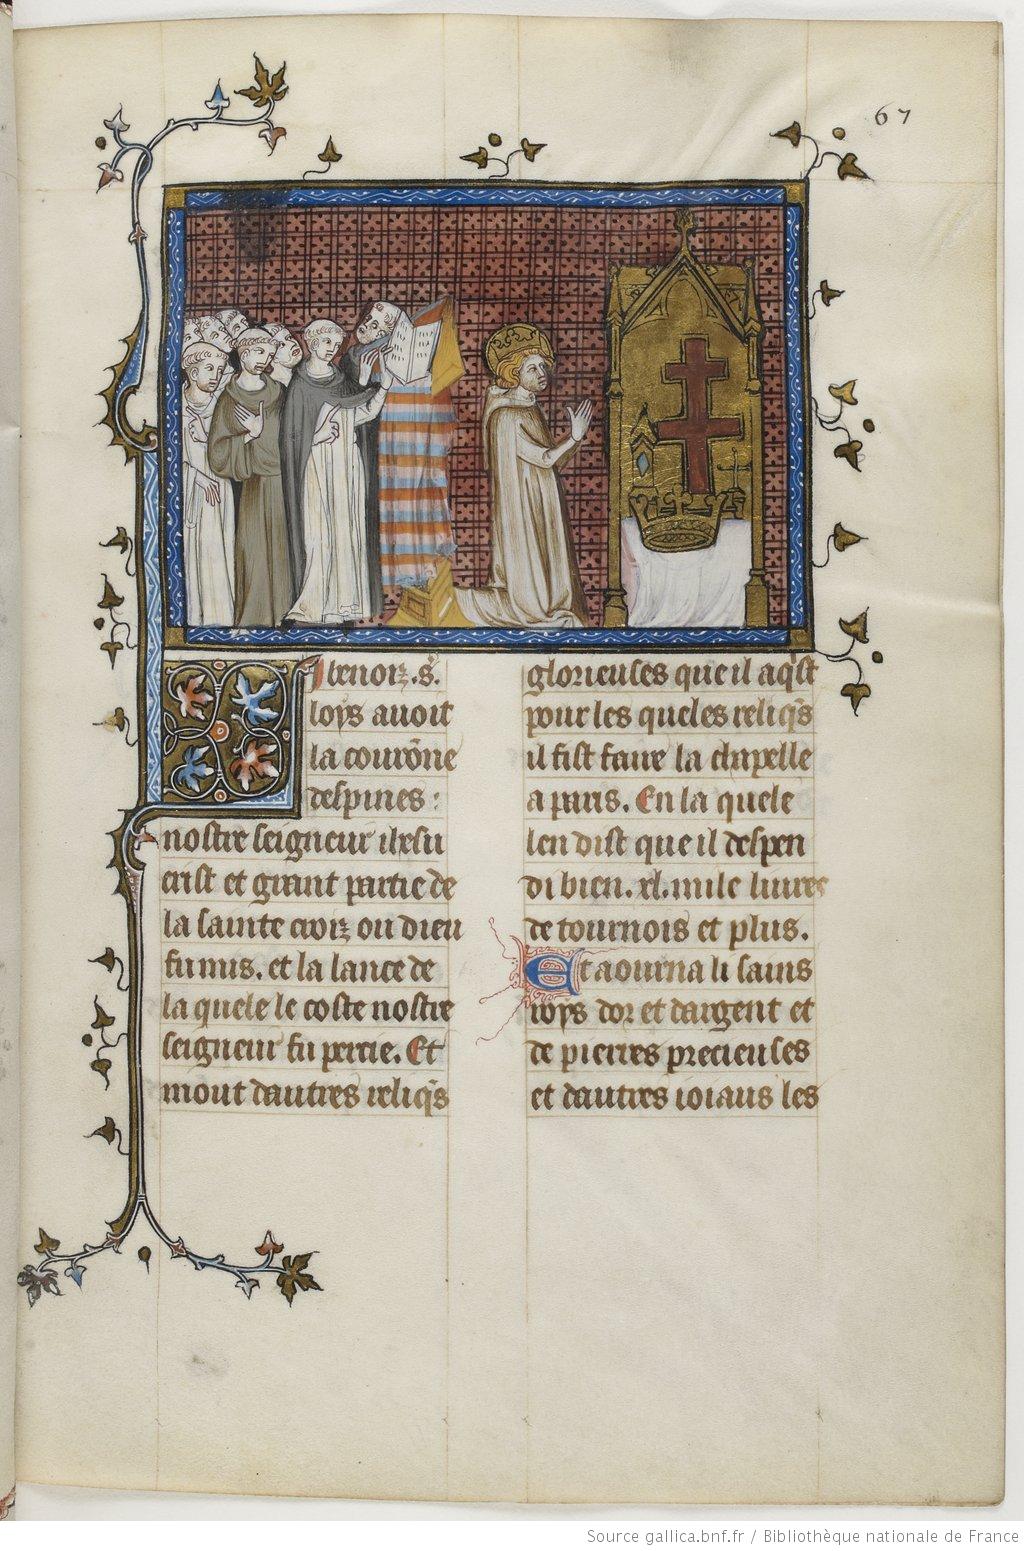 67
Li benoiz .s.
loys auoit
la couro̅ne
despines :
nostre seigneur ihesu
crist et grant partie de
la sainte croiz ou dieu
fu mis. et la lance de
la quele le coste nostre
seigneur fu percie. Et
mout dautres reliq̅s
glorieuses que il aq̅st
pour les queles reliq̅s
il fist faire la chapelle
a paris. En la quele
len dist que il despen
di bien .xl. mile liures
de tournois et plus.
Et aourna li sains
roys dor et dargent et
de pierres precieuses
et dautres ioiaus les
Source gallica.bnf.fr / Bibliothèque nationale de France